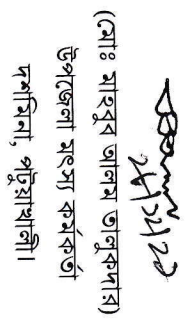 ২৮/১২/২০
(মোঃ মাহবুব আলম তালুকদার)
উপজেলা মৎস্য কর্মকর্তা
দশমিনা, পটুয়াখালী।